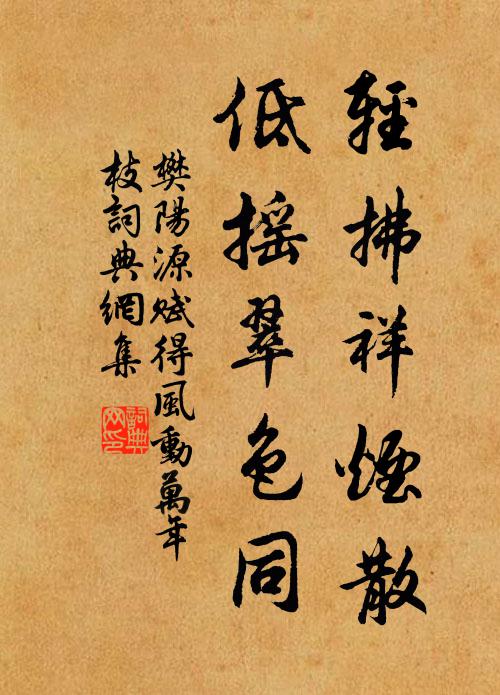 輕拂祥煙散
低搖翠色同
樊陽源賦得風動萬年
枝詞典網集
詞典网印